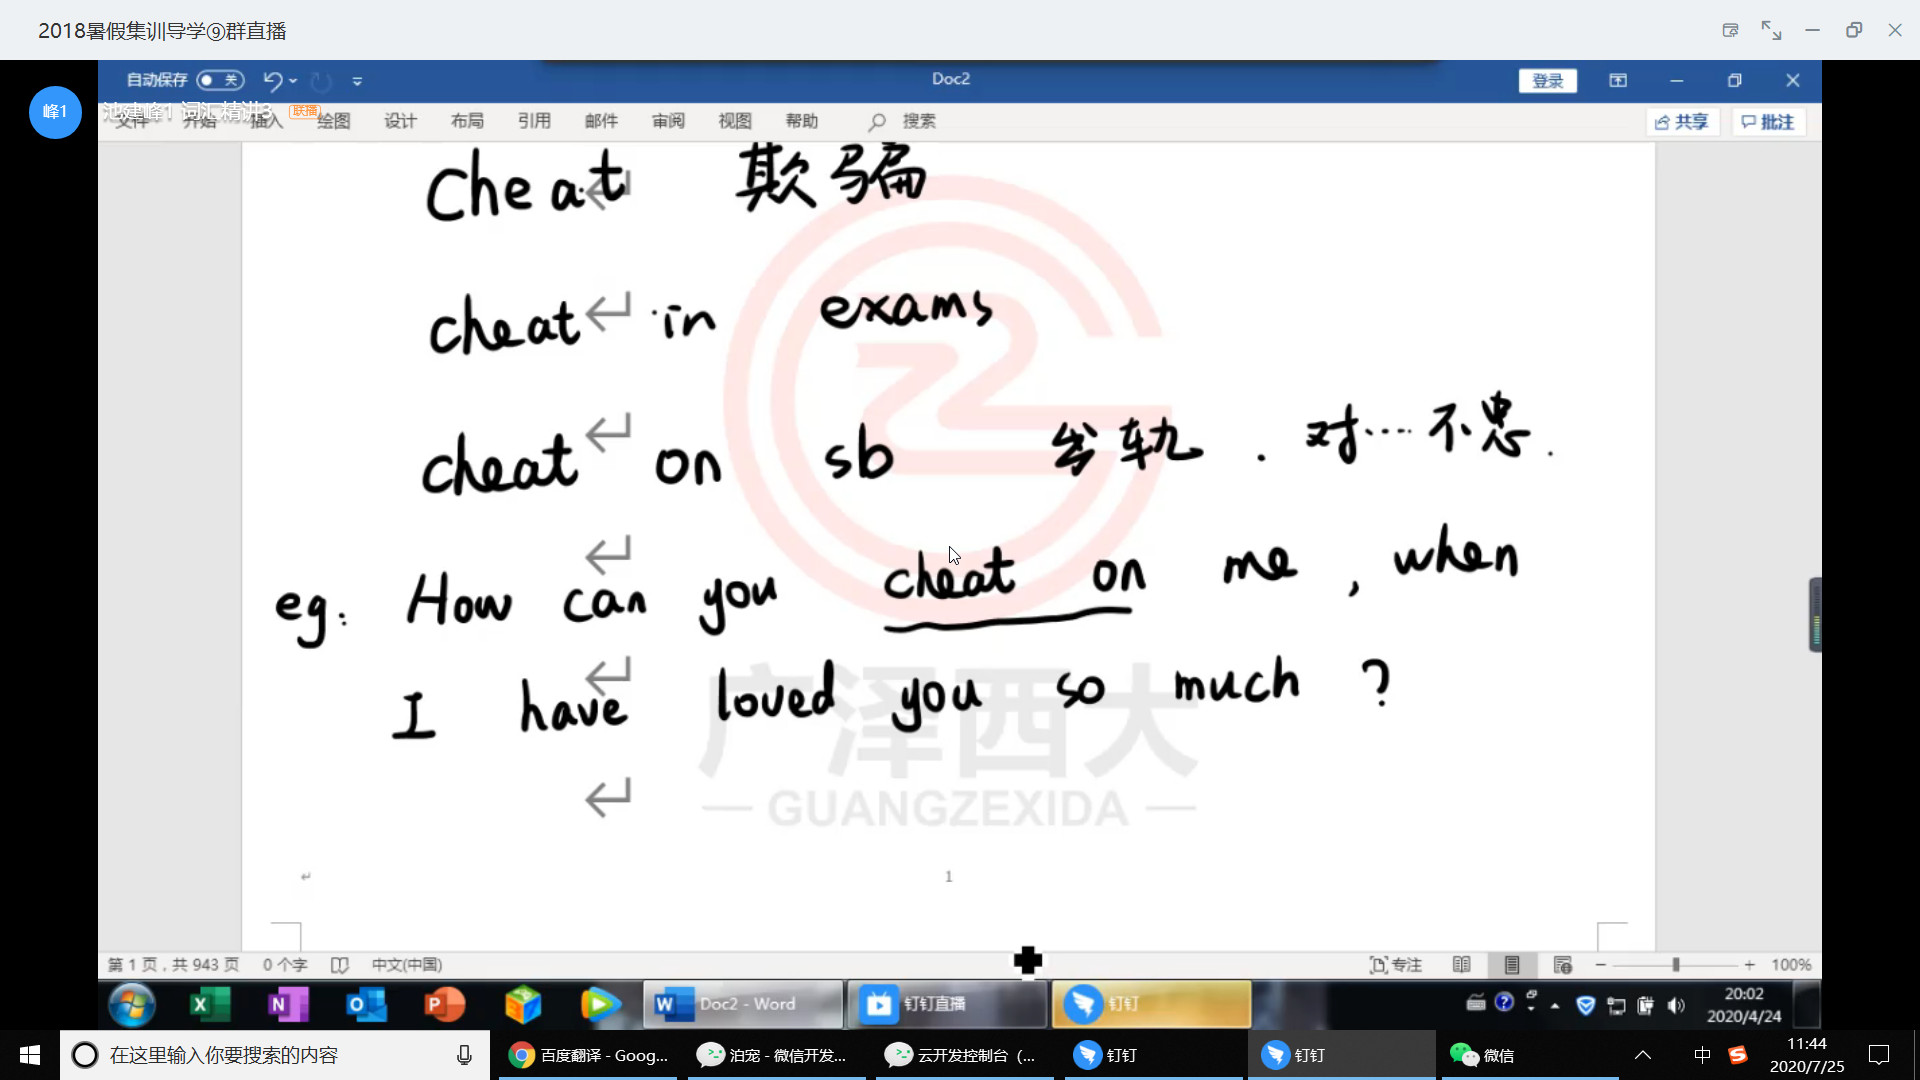 2018暑假集训导学⑨群直播
自动保存 关 Doc2 登录
峰1 池建峰1 词汇精讲3 联播
文件 开始 插入 绘图 设计 布局 引用 邮件 审阅 视图 帮助 搜索 共享 批注
cheat 欺骗
cheat in exams
cheat on sb 出轨 . 对…不忠.
eg: How can you cheat on me , when
I have loved you so much ?
广泽西大
— GUANGZEXIDA —
1
第 1 页，共 943 页 0 个字 中文(中国) 专注 100%
Doc2 - Word 钉钉直播 钉钉 20:02
2020/4/24
在这里输入你要搜索的内容 百度翻译 - Goog... 泊宠 - 微信开发... 云开发控制台（... 钉钉 钉钉 微信 中 11:44
2020/7/25